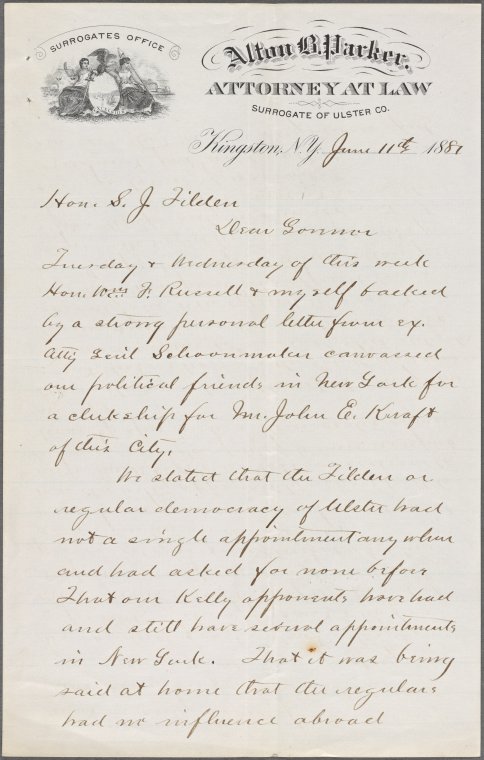 SURROGATES OFFICE
Alton B. Parker.
ATTORNEY AT LAW
SURROGATE OF ULSTER CO.
Kingston, N.Y. June 11th 1881
Hon. S. J. Tilden
Dear Govnor
Tuesday & Wednesday of this week
Hon. Wm. F. Russell & myself backed
by a strong personal letter from ex.
Atty Genl Schoonmaker canvassed
our political friends in New York for
a clerkship for Mr. John E. Kraft
of this City.
We stated that the Tilden or
regular democracy of Ulster had
not a single appointment any where
and had asked for none before
That our Kelly opponents have had
and still have several appointments
in New York. That it was being
said at home that the regulars
had no influence abroad